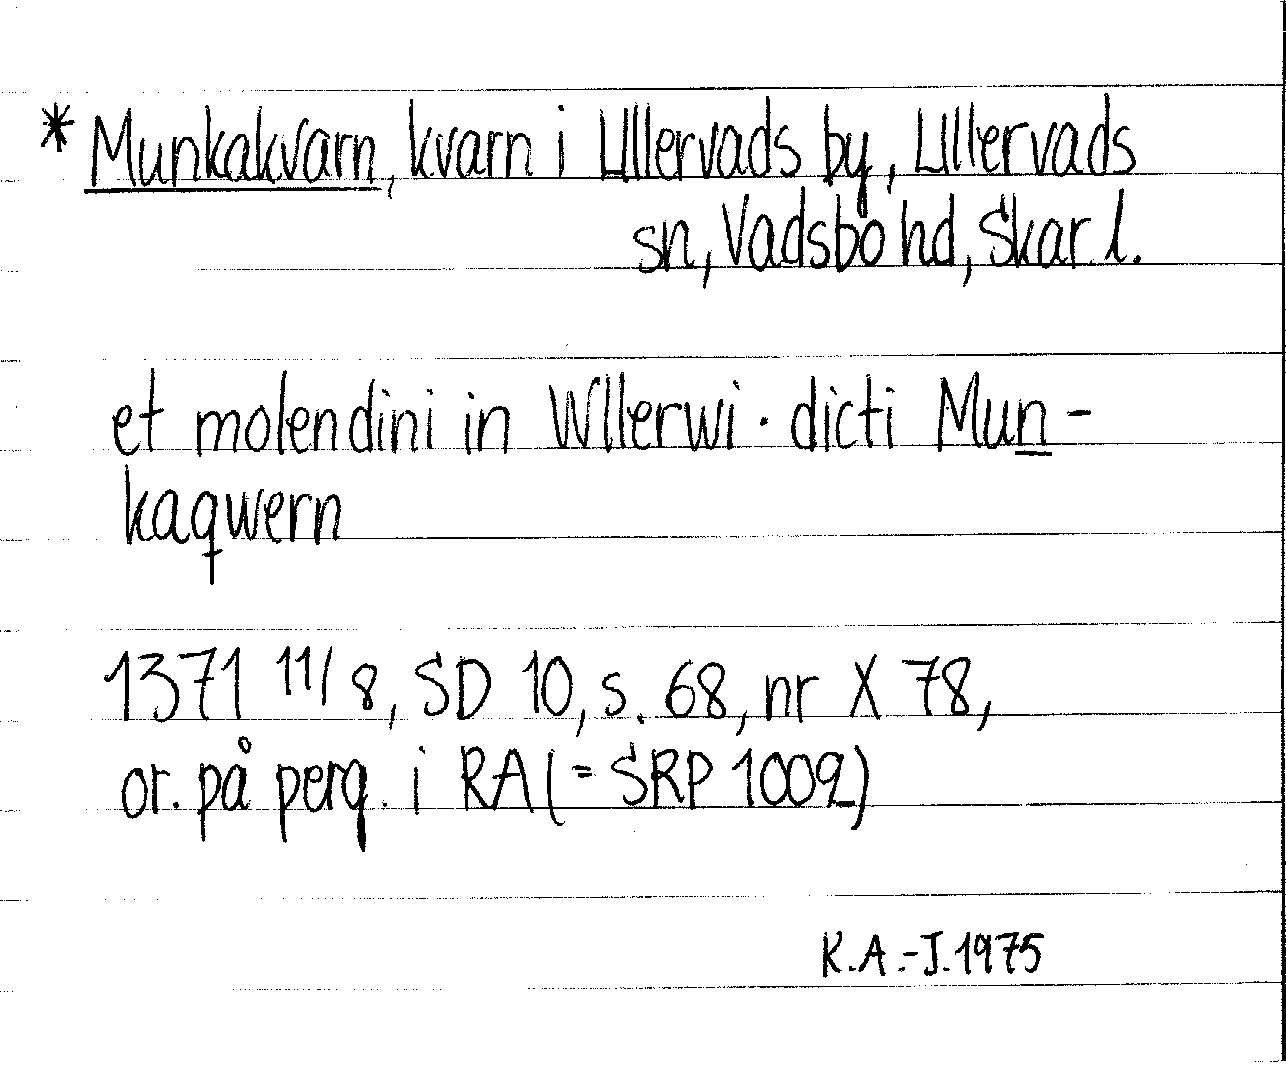 * Munkakvarn, kvarn i Ullervads by, Ullervads
sn, Vadsbo hd, Skar. l.
et molendini in Wllerwi · dicti Mun-
kaqwern
1371 11/8, SD 10, s. 68, nr X 78,
or. på perg. i RA (= SRP 1009)
K.A.-J. 1975